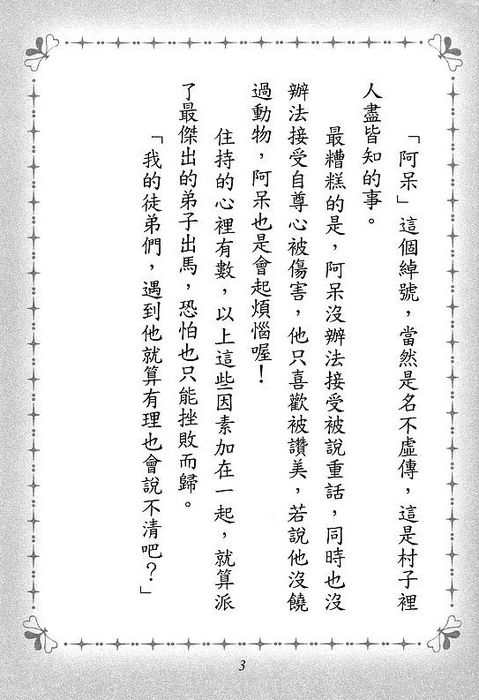 「阿呆」這個綽號，當然是名不虛傳，這是村子裡
人盡皆知的事。
最糟糕的是，阿呆沒辦法接受被說重話，同時也沒
辦法接受自尊心被傷害，他只喜歡被讚美，若說他沒饒
過動物，阿呆也是會起煩惱喔！
住持的心裡有數，以上這些因素加在一起，就算派
了最傑出的弟子出馬，恐怕也只能挫敗而歸。
「我的徒弟們，遇到他就算有理也會說不清吧？」
3